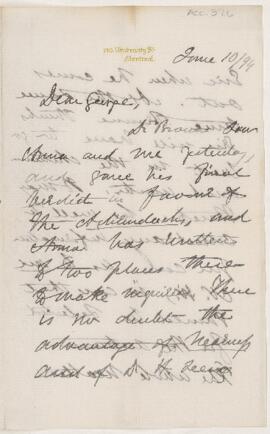 ACC. 376
Montreal.
June 10/94
Dear George,
Dr Brown saw
Anna and me yesterday,
and gave his final
verdict in favour of
the Adirondacks, and
Anna has written
to two places there
to make inquiries. There
is no doubt the
advantage of nearness
and of Dr H. being